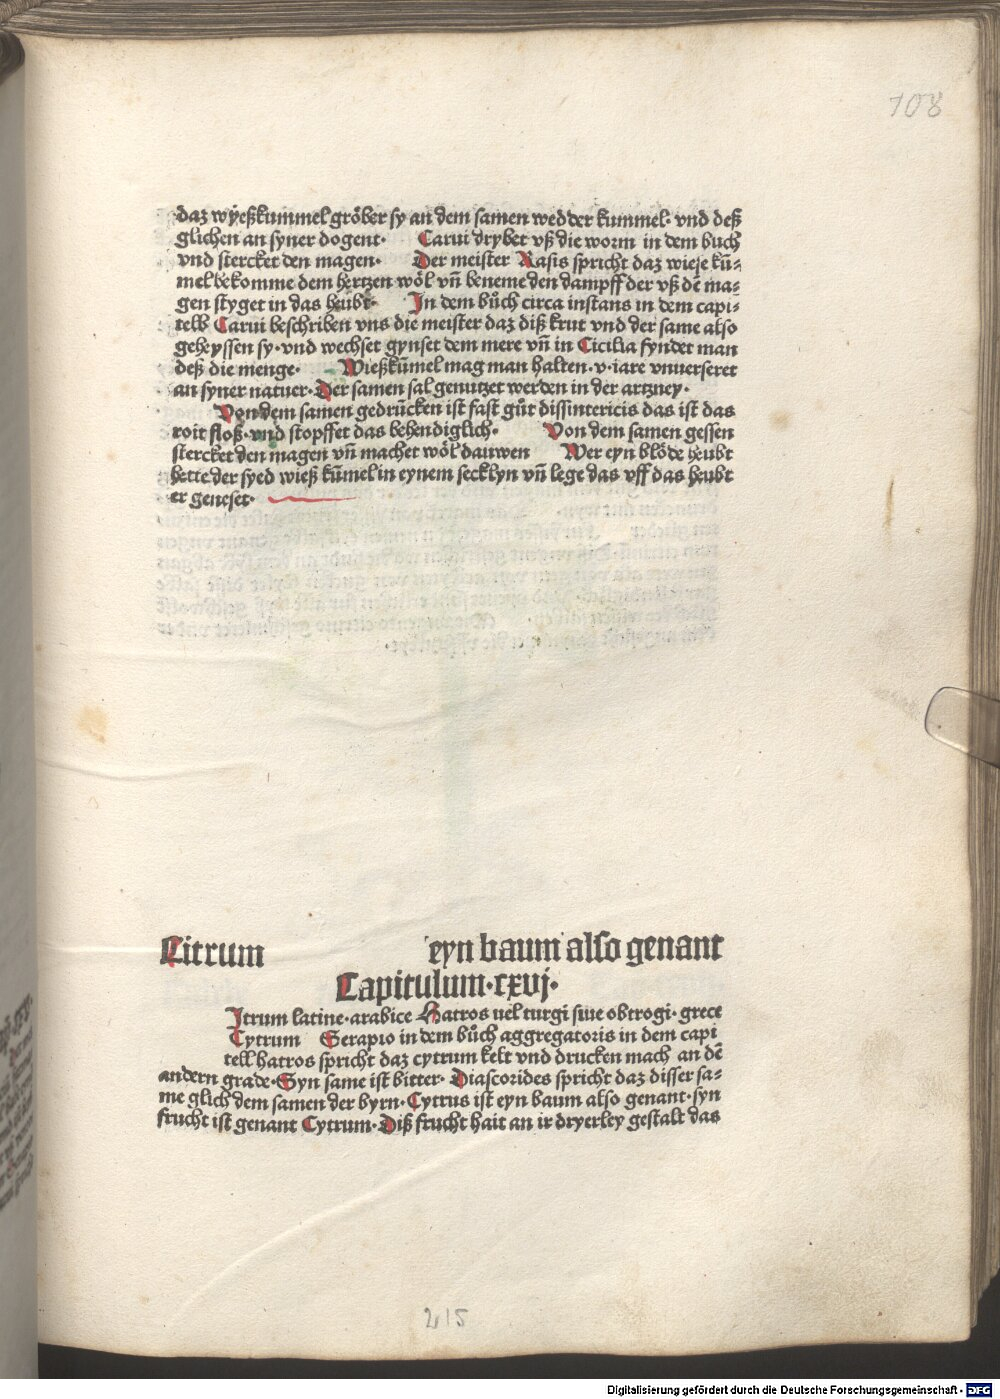 108
daz wyeßkummel gröber sy an dem samen wed der kummel· vnd deß
glichen an syner dogent· Carui drybet vß die worm in dem buch
vnd stercket den magen· Der meister Rasis spricht daz wieße kū-
mel bekomme dem hertzen wöl vn̄ beneme den dampff der vß dē ma-
gen styget in das heubt· In dem bůch circa instans in dem capi-
tell Carui beschriben vns die meister daz diß krut vnd der same also
geheyssen sy· vnd wechset gynset dem mere vn̄ in Cicilia fyndet man
deß die menge· Wießkūmel mag man halten ·v· iare vnuerseret
an syner natuer· Der samen sal genutzet werden in der artzney·
Von dem samen gedrūcken ist fast gůt dissintericis das ist das
roit floß· vnd stopffet das behendiglich· Von dem samen gessen
stercket den magen vn̄ machet wöl dauwen Wer eyn blöde heubt
hette der syed wieß kūmel in eynem secklyn vn̄ lege das vff das heubt
er geneset·
Citrum eyn baum also genant
Capitulum ·cxvj·
Itrum latine· arabice Hatros uel turgi siue obtrogi· grece
Cytrum Serapio in dem bůch aggregatoris in dem capi
tell hatros spricht daz cytrum kelt vnd drucken mach an dē
andern grade· Syn same ist bitter· Diascorides spricht daz disser sa-
me glich dem samen der byrn· Cytrus ist eyn baum also genant· syn
frucht ist genant Cytrum· Diß frucht hait an ir dryerley gestalt das
215
Digitalisierung gefördert durch die Deutsche Forschungsgemeinschaft - DFG